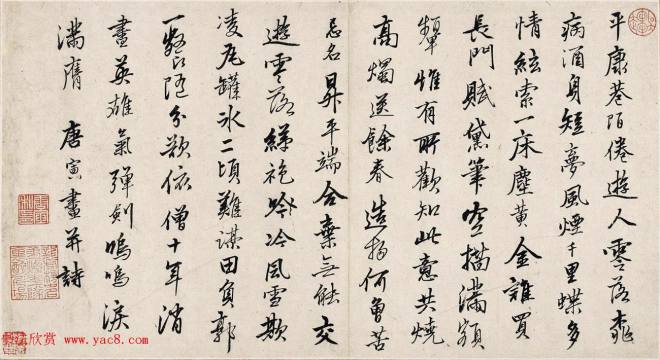 平康巷陌倦遊人零落桃
病酒身短夢風煙千里蝶多
情絃索一床塵黄金誰買
長門賦黛筆空描滿額
顰惟有所歡知此意共燒
高燭送餘春造物何曾苦
忌名昇平端合棄無能交
遊零落綈袍冷風雪欺
凌瓦罐冰二頃難謀田負郭
一餐隨分欲依僧十年消
盡英雄氣彈劍嗚嗚淚
滿膺 唐寅畫并詩
欣赏
www.yac8.com